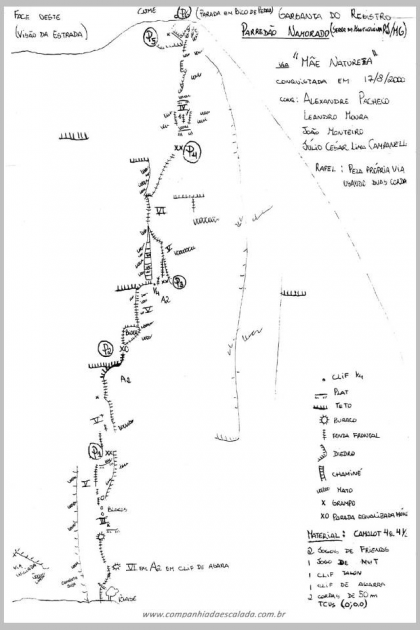 FACE OESTE
(VISÃO DA ESTRADA)
CUME
P6
(PARADA EM BICO DE PEDRA)
GARGANTA DO REGISTRO
PARREDÃO NAMORADO
VIA "MÃE NATUREZA"
CONQUISTADA EM 17/8/2000
CONQ: ALEXANDRE PACHECO
LEANDRO MOURA
JOÃO MONTEIRO
JÚLIO CESAR LIMA CAMPANELLI
RAPEL: PELA PRÓPRIA VIA
USANDO DUAS CORDA
P5
IV
XX
P4
VI
V
P3
A2
V
BLOCO
P2
XO
A2
V
P1
XX
VI
BLOCOS
VI EM A2 EM CLIF DE AGARRA
BASE
CLIF
PLAT
TETO
BURACO
FENDA FRONTAL
DIEDRO
CHAMINÉ
MATO
X GRAMPO
XO PARADA EQUALIZADA MÓVEL
MATERIAL: CAMALOT 4 E 4½
2 JOGOS DE FRIENDS
1 JOGO DE NUT
1 CLIF TALON
1 CLIF DE AGARRA
2 CORDAS DE 50 m
www.companhiadaescalada.com.br